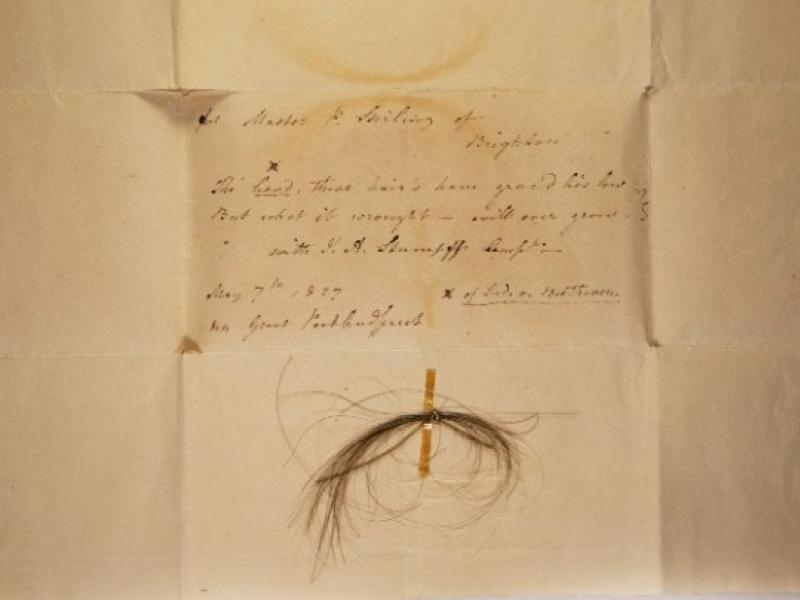 for Master P. Stirling of
Brighton
x
The head, these hair's have grac'd his low
But what it wrought – will ever grow.
with J. A. Stumpff's Compts –
May 7th 1827
x of Lud: v. Beethoven.
44 Great Portland Street